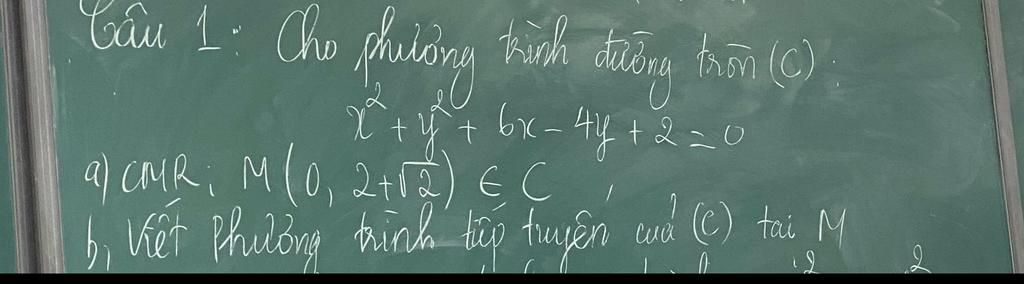 Câu 1: Cho phương trình đường tròn (C):
x² + y² + 6x - 4y + 2 = 0
a) CMR: M(0, 2+√2) ∈ C
b, Viết Phương trình tiếp tuyến của (C) tại M